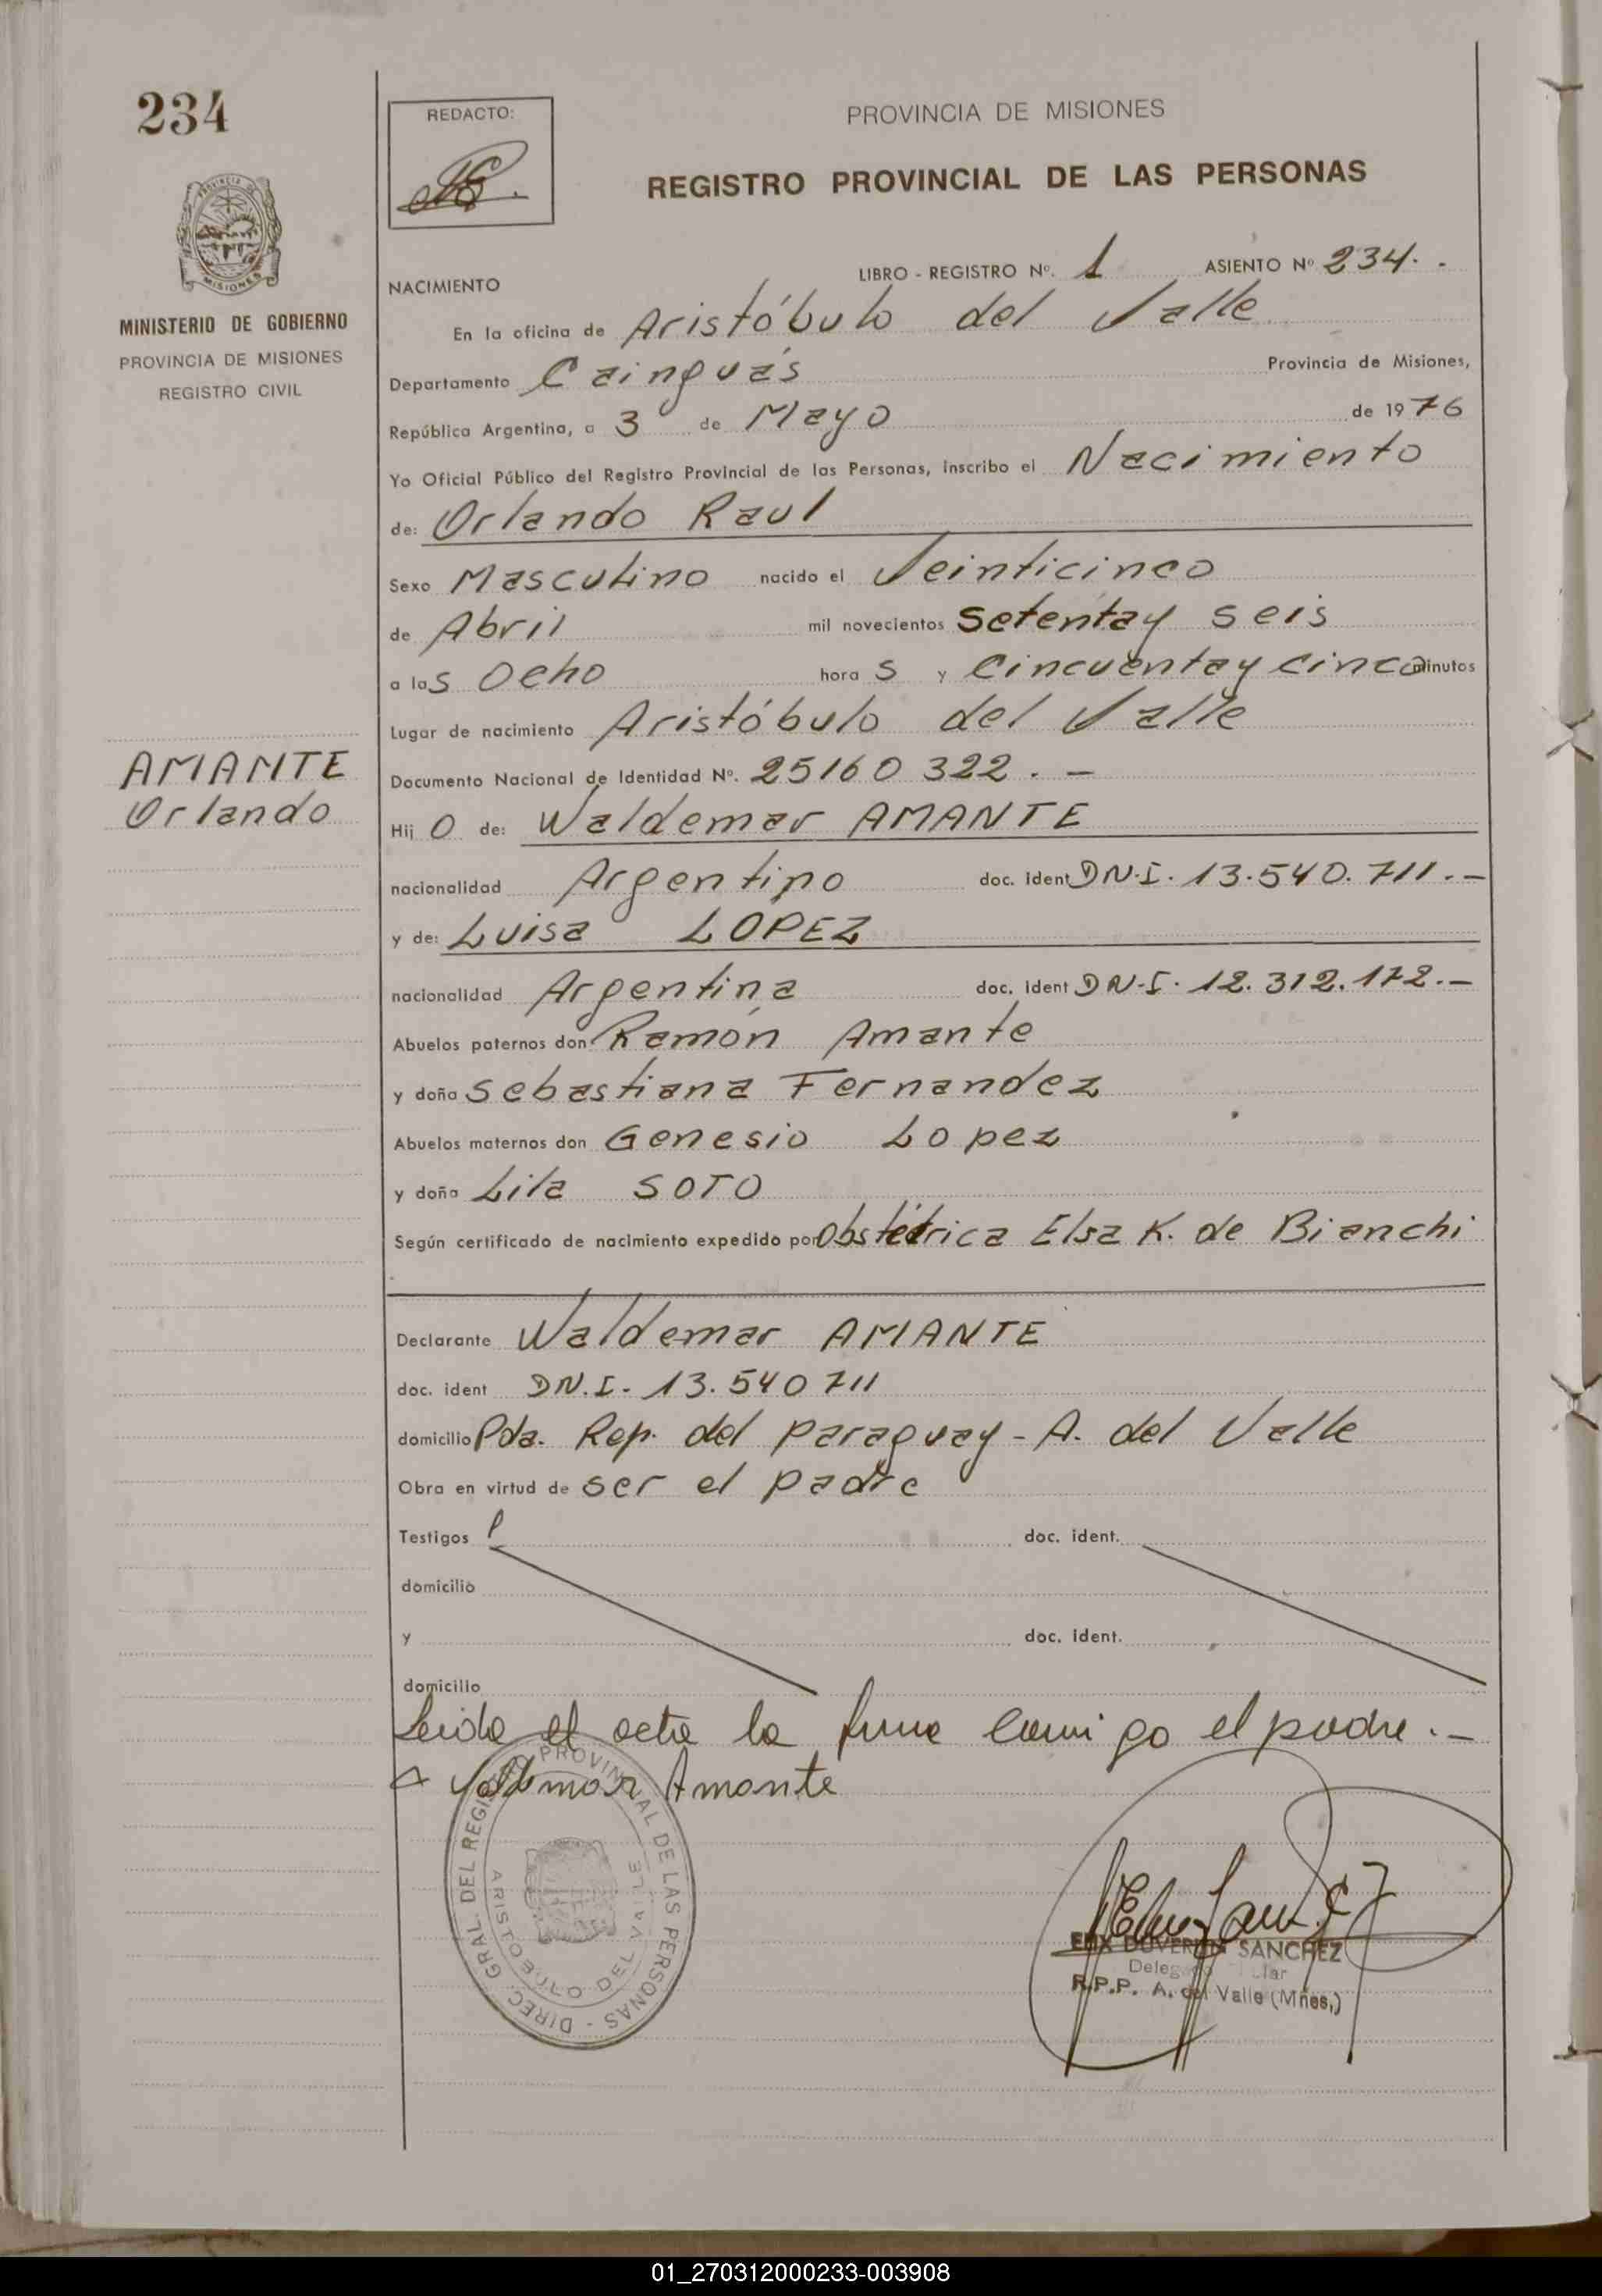 234
REDACTO:
PROVINCIA DE MISIONES
REGISTRO PROVINCIAL DE LAS PERSONAS
MISIONES
MINISTERIO DE GOBIERNO
PROVINCIA DE MISIONES
REGISTRO CIVIL
LIBRO - REGISTRO Nº. 1 ASIENTO Nº 234. -
NACIMIENTO
En la oficina de Aristóbulo del Valle
Departamento Cainguás Provincia de Misiones,
República Argentina, a 3 de Mayo de 1976
Yo Oficial Público del Registro Provincial de las Personas, inscribo el Nacimiento
de: Orlando Raul
Sexo Masculino nacido el Veinticinco
de Abril mil novecientos Setenta y seis
a las Ocho horas y Cincuenta y cinco minutos
Lugar de nacimiento Aristóbulo del Valle
AMANTE
Orlando
Documento Nacional de Identidad Nº. 25160322. -
Hijo de: Waldemar AMANTE
nacionalidad Argentino doc. ident D.N.I. 13.540.711.-
y de: Luisa LOPEZ
nacionalidad Argentina doc. ident D.N.I. 12.312.172.-
Abuelos paternos don Ramón Amante
y doña Sebastiana Fernandez
Abuelos maternos don Genesio Lopez
y doña Lila SOTO
Según certificado de nacimiento expedido por Obstétrica Elsa K. de Bianchi
Declarante Waldemar AMANTE
doc. ident D.N.I. 13.540711
domicilio Pda. Rep. del Paraguay - A. del Valle
Obra en virtud de ser el padre
Testigos doc. ident.
domicilio
y doc. ident.
domicilio
Leida el acta la firma conmigo el padre.-
Amante
DIREC. GRAL. DEL REGISTRO PROVINCIAL DE LAS PERSONAS -
ARISTOBULO DEL VALLE
SANCHEZ
R.P.P. A. del Valle (Mnes,)
01_270312000233-003908